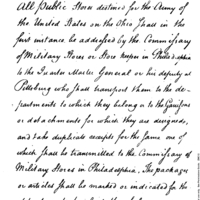 All public Stores destined for the Army of
the United States on the Ohio shall in the
first instance be addressed by the Commissary
of Military Stores or Store keeper in Philadelphia
to the Quarter Master General or his deputy at
Pittsburg who shall transport them to the de-
partments to which they belong or to the Garrisons
or detachments for which they are designed,
and take duplicate receipts for the same one of
which shall be transmitted to the Commissary of
Military Stores in Philadelphia. The packages
or articles shall be marked or indicated for the